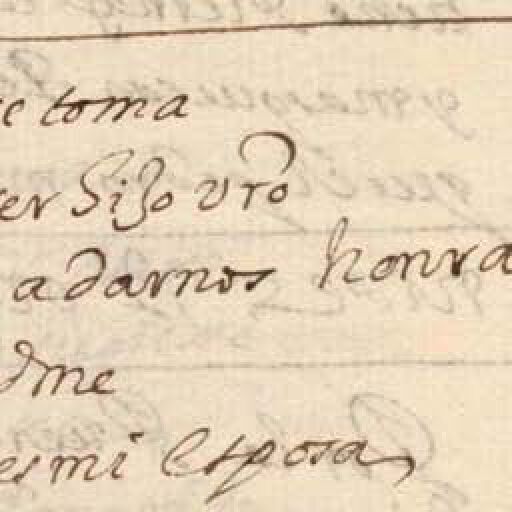 toma
er hijo vro
a darnos honra
dme
es mi esposa,